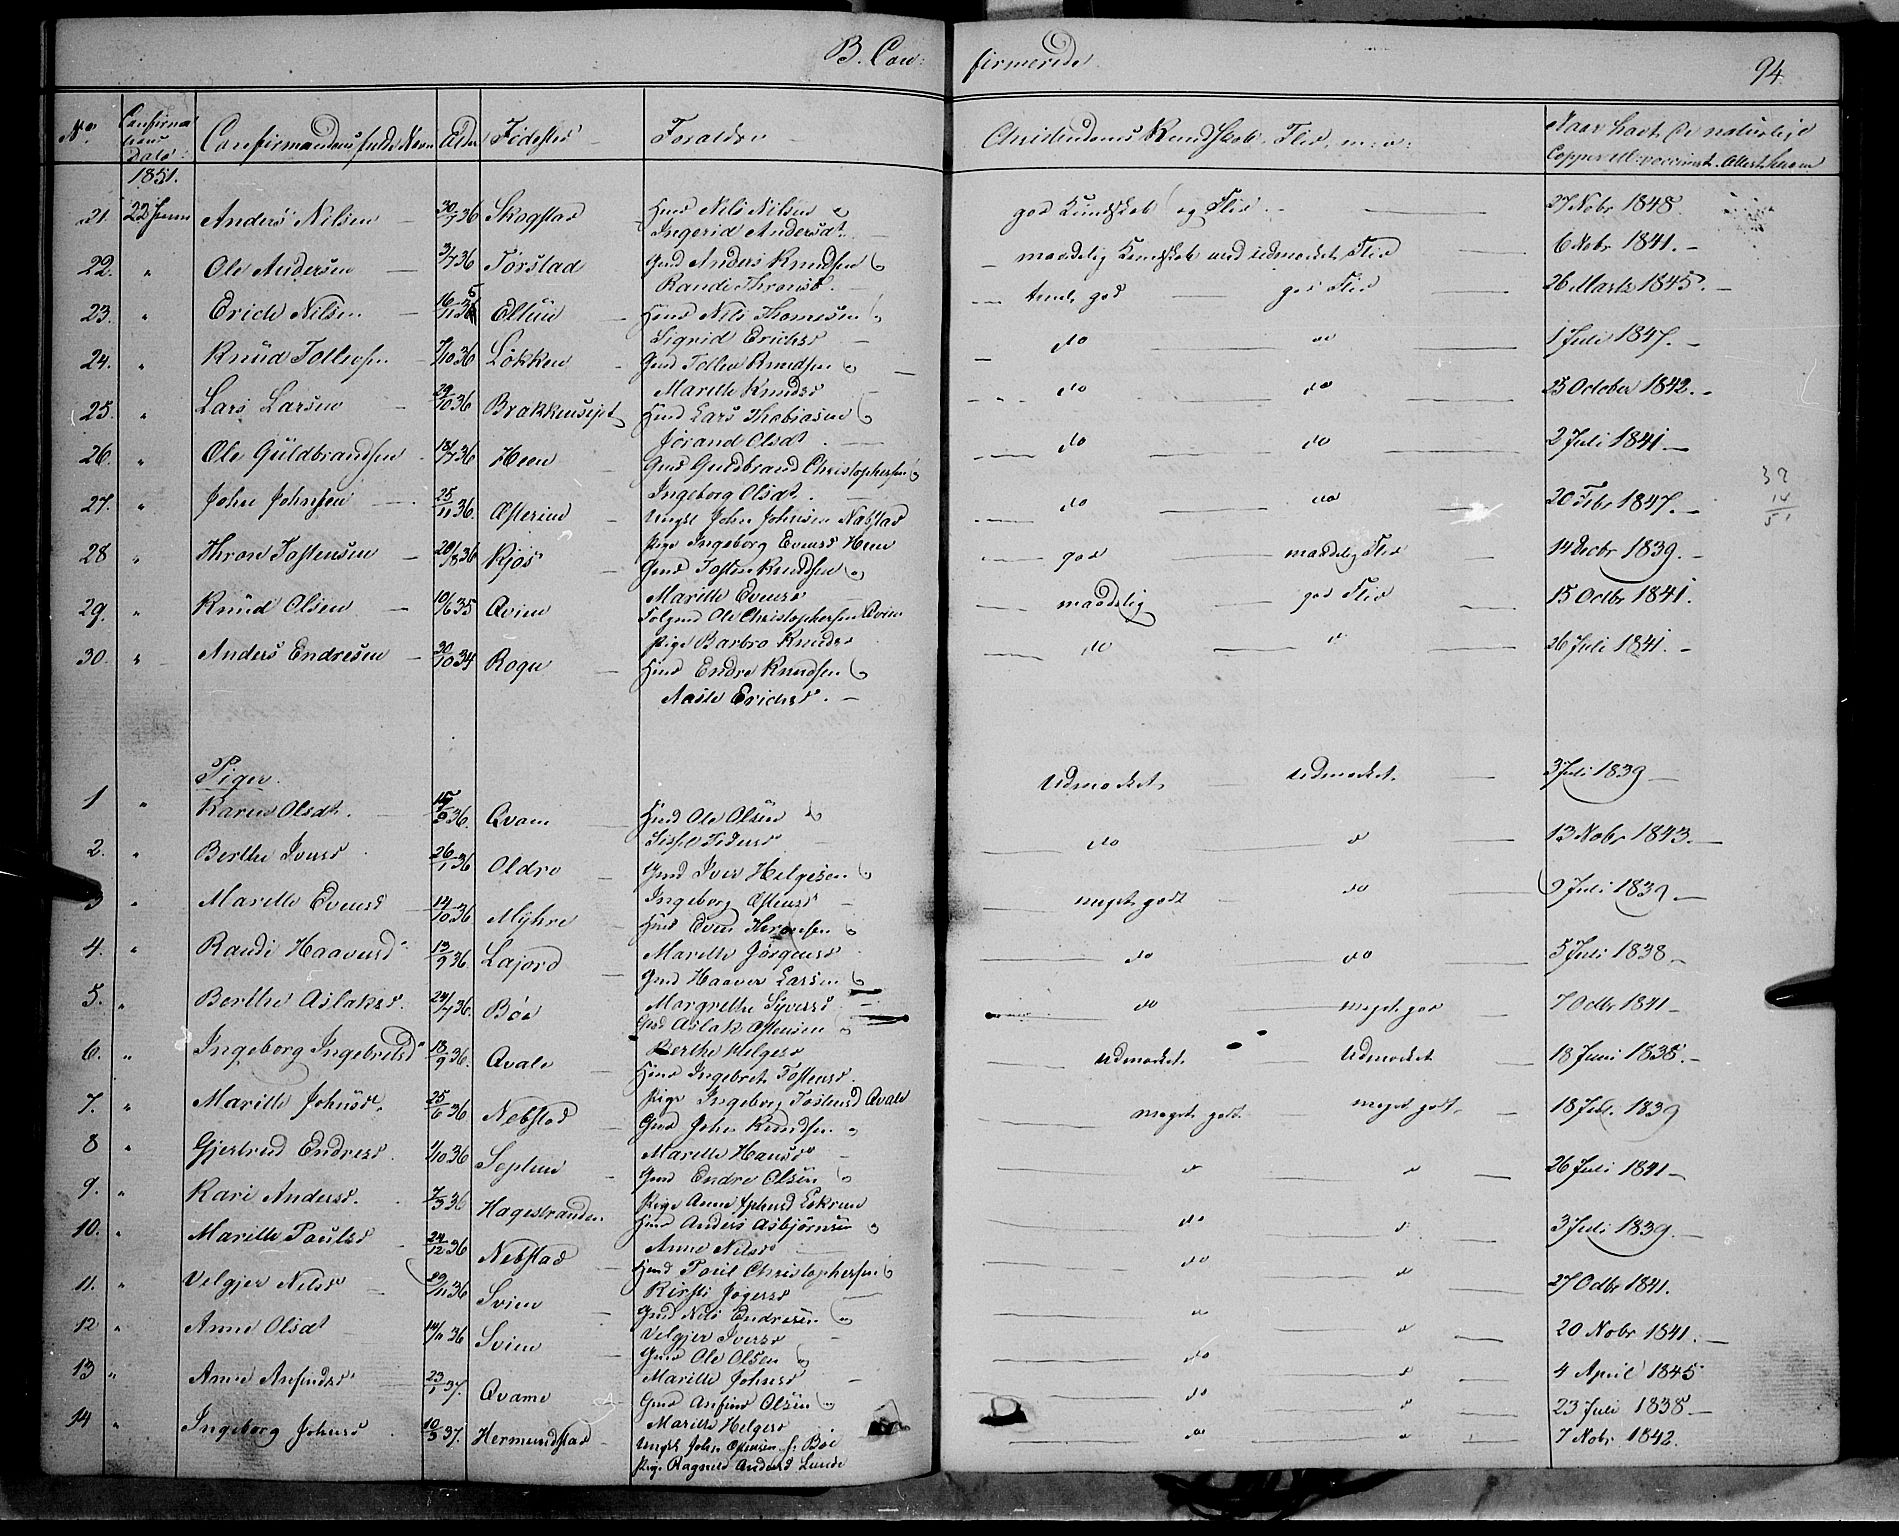 B. Con- firmerede. 94.
No. Confirmations Dato: Confirmandens fulde Navn Alder Fødested Forældre Christendoms Kundskab, Flid, m: v: Naar havt de naturlige Copper ell: vaccineret. Attest herom
1851.
21. 22 Juni Anders Nilsen 30/7 36 Skogstad Hmd Nils Nilsen og Ingerid Andersdt. god Kundskab og Flid 27 Nobr 1848.
22. " Ole Andersen 3/7 36 Forstad Gmd Anders Knudsen og Randi Thronsd. maadelig Kundskab med udmærket Flid 6 Nobr 1841.
23. " Erich Nilsen 16/11 35 Eltun Hmd Nils Thomesen og Sigrid Erichsd. temlig god god Flid 26 Marts 1845.
24. " Knud Tollefsen 7/10 36 Løkken Gmd Tollef Knudsen og Marithe Knudsd do do 1 Juli 1847.
25. " Lars Larsen 29/10 36 Brakkensejet Hmd Lars Thobiasen og Jørand Olsdt. do do 23 October 1842.
26. " Ole Guldbrandsen 18/7 36 Heen Gmd Guldbrand Christophersen og Ingeborg Olsdt. do do 2 Juli 1841
27. " John Johnsen 25/11 36. Østerien Ungkl John Johnsen Nabstad Pige Ingeborg Evensd Heen do do 20 Febr 1847.
28 " Thron Tostensen 20/8 36 Kjøs Gmd Tosten Knudsen og Marithe Evensd god maadelig Flid 14 Decbr 1839.
29. " Knud Olsen 10/6 35 Qvien Folgmd Ole Christophersen Qvien Pige Barbro Knudsd maadelig god Flid 15 Octbr 1841.
30. " Anders Endresen 30/10 34 Rogn Hmd Endre Knudsen og Aaste Erichsd. do " 26 Juli 1841.
Piger.
1 " Karen Olsdt. 36. Qvam Hmd Ole Olsen og Sissel Pedersd Udmærket Udmærket 3 Juli 1839
2. " Berthe Iversd 26/1 36 Oldre Gmd Iver Helgesen og Ingeborg Østensd do d 13 Nobr 1843.
3 " Marithe Evensd 14/10 36 Myhre Hmd Even Thronsen og Marithe Jørgensd meget godt do 9 Juli 1839.
4. " Randi Haaversd 13/9 36. Lajord Gmd Haaver Larsen og Margrethe Syversd do do 5 Juli 1838
5. " Berthe Aslaksd. 24/7 36. Bøe Gmd Aslak Østensen og Berthe Helgesd do meget god 7 Octbr 1841
6. " Ingeborg Ingebretsd 18/9 36. Qvale Hmd Ingebret Tostensd. Pige Ingeborg Tostensd Qvale Udmærket Udmærket 18 Juni 1838.
7. " Marithe Johnsd. 25/6 36 Nebstad Gmd John Knudsen og Marithe Hansd meget godt meget godt 18 Juli 1839
8 " Gjertrud Endresd. 1/10 36 Gmd Endre Olsen og Pige Anne d d 26 Juli 1841
9. " Kari Andersd. 7/3 36 Hagestranden Hmd Anders Asbjørnsen og Anne Nilsd do d 3 Juli 1839.
10. " Marithe Poulsd 24/12 36 Nebstad Hmd Poul Christophersen og Kirsti do d 27 Octbr 1841.
11. " Velgjer Nilsd 29/11 36 Svien Gmd Nils Endresen og Velgjer Iversd d d 20 Nobr 1841.
12 " Anne Olsdt 36 Svien Gmd Ole Olsen og Marithe Johnsd do d 4 April 1845
13 " Anne Anfindsd 23/1 37. Qvame Gmd Anfind Olsen og Marithe Helgesd do d 23 Juli 1838
14 " Ingeborg Johnsd 10/3 37. Hermundstad Ungkl John Østensen f: Bøe Pige Ragnild Andersd Lunde do d 7 Nobr 1842.